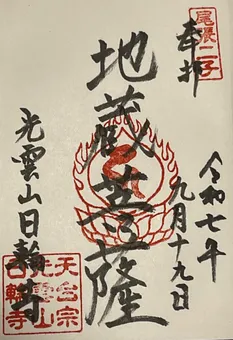 尾張二子
奉拝
令和七年
九月十九日
地蔵菩薩
光雲山日輪寺
天台宗
光雲山
日輪寺